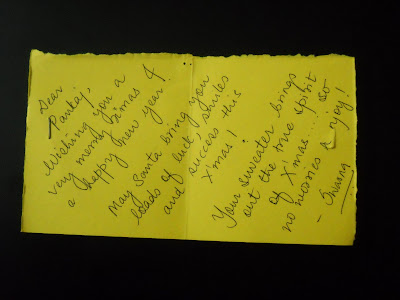 Dear
Pankaj,
Wishing you a
very merry X'mas &
a happy new year!
May Santa bring you
loads of luck, smiles
and success this
X'mas!
Your sweater brings
out the true spirit
of X'mas...! So
no worries & joy!
-